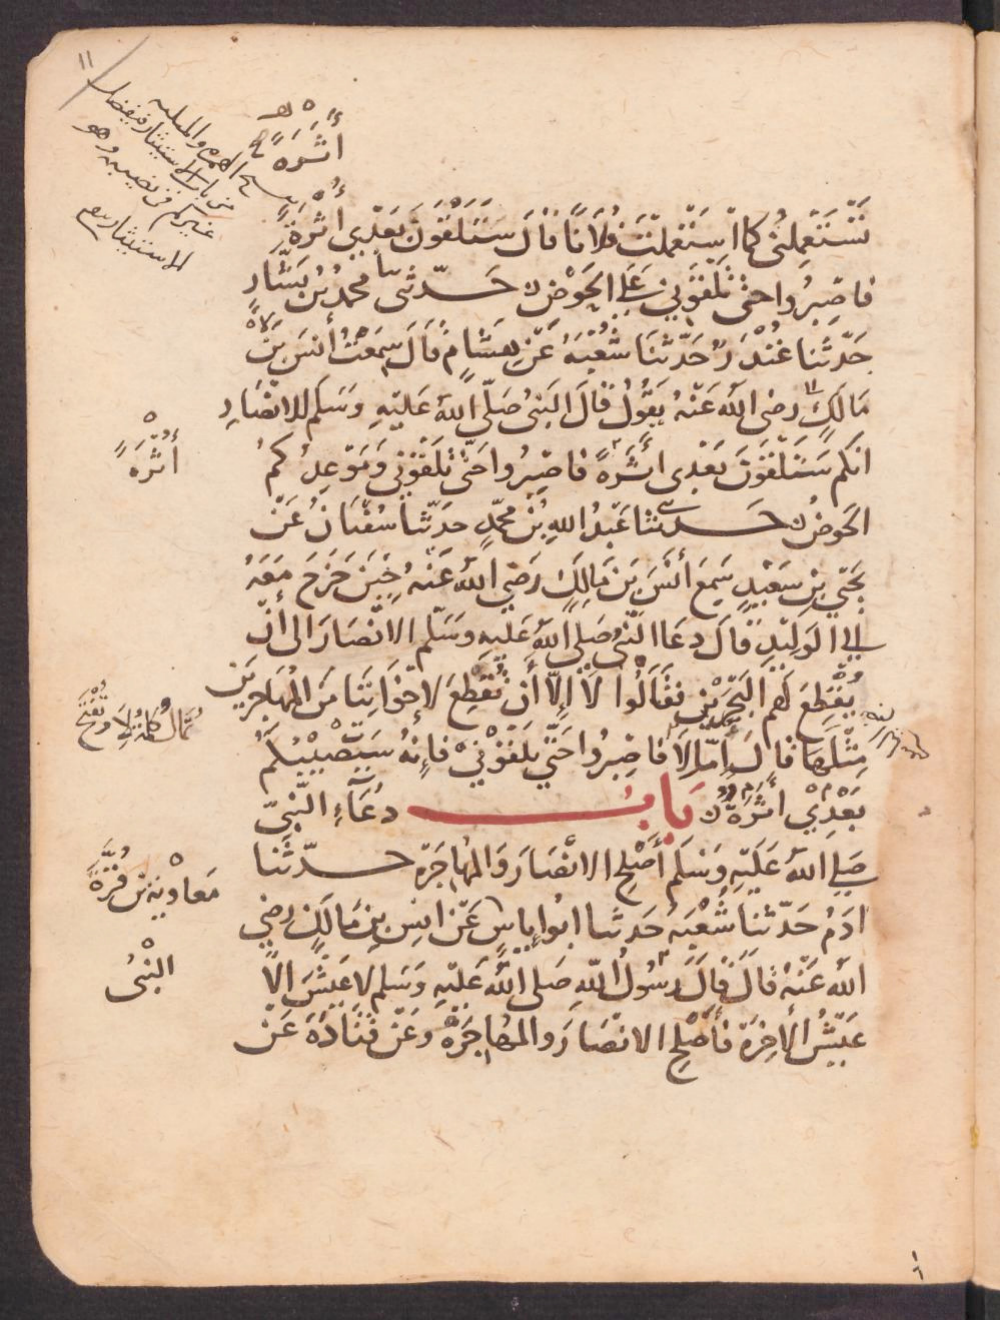 ١١
أَثَرَةً
تَسْتَعْمِلُنِي كما اسْتَعْمَلْتَ فُلَانًا قَالَ سَتَلْقَوْنَ بَعْدِي أُثْرَةً
فاصْبِرُوا حتى تَلْقَوْنِي عَلَى الحَوْضِ حَدّثنا محمدُ بْنُ بَشَّارٍ
حَدّثنا غُنْدَرٌ حَدّثَنَا شُعْبَةُ عَنْ هِشَامٍ قَالَ سَمِعْتُ أنَسَ بْنَ
مَالِكٍ رضى الله عَنْهُ يَقُولُ قَالَ النبىُّ صَلّى اللهُ عَلَيْهِ وَسَلم للانْصَارِ
انكم سَتَلْقَوْنَ بَعْدِى أَثَرَةً فاصْبِرُوا حَتّى تَلْقَوْنِي وَمَوْعِدُكُمُ
أُثْرَةً
الحَوْضُ حَدّثنا عَبْدُ اللهِ بْنُ مُحمّدٍ حدَثنا سُفْيَانُ عَنْ
يَحْيَى بْنِ سَعِيْدٍ سَمِعَ أنَسَ بْنَ مَالِكٍ رَضِيَ اللهُ عَنْهُ حِيْنَ خَرَجَ مَعَهُ
إلى الوَلِيْدِ قالَ دعَا النّبىُّ صَلى اللهُ عَليهِ وَسَلّم الانْصَارَ الى أنْ
يُقْطِعَ لَهُم البَحْرَيْنِ فقَالُوا لَا إلّا أنْ تُقْطِعَ لإخْوَانِنَا مِنَ المُهَاجِرِيْنَ
مِثْلَهَا قالَ إمّا لَا فاصْبِرُوا حَتّى تَلْقَوْنِيْ فإنهُ سَيُصِيْبُكُمْ
بَعْدِيْ أثَرَةٌ بَابُ دُعَاءِ النّبيّ
صَلى اللهُ عَلَيْهِ وَسَلم أَصْلِحِ الانْصَارَ وَالمُهَاجِرَة حدّثنا
ادَمُ حَدّثنا شُعْبَةُ حَدثنا ابُوا إيَاسٍ عَنْ انسِ بْنِ مَالِكٍ رضي
مُعَاوِيَة بْن قُرَّةَ
اللهُ عَنْهُ قالَ قالَ رَسُولُ اللّهِ صَلى اللهُ عَلَيْهِ وَسَلم لا عَيْشَ الا
النبىُّ
عَيْشُ الأخِرَة فأصْلِحِ الانْصَارَ والمُهَاجِرَةْ وعَنْ قَتَادَةَ عَنْ